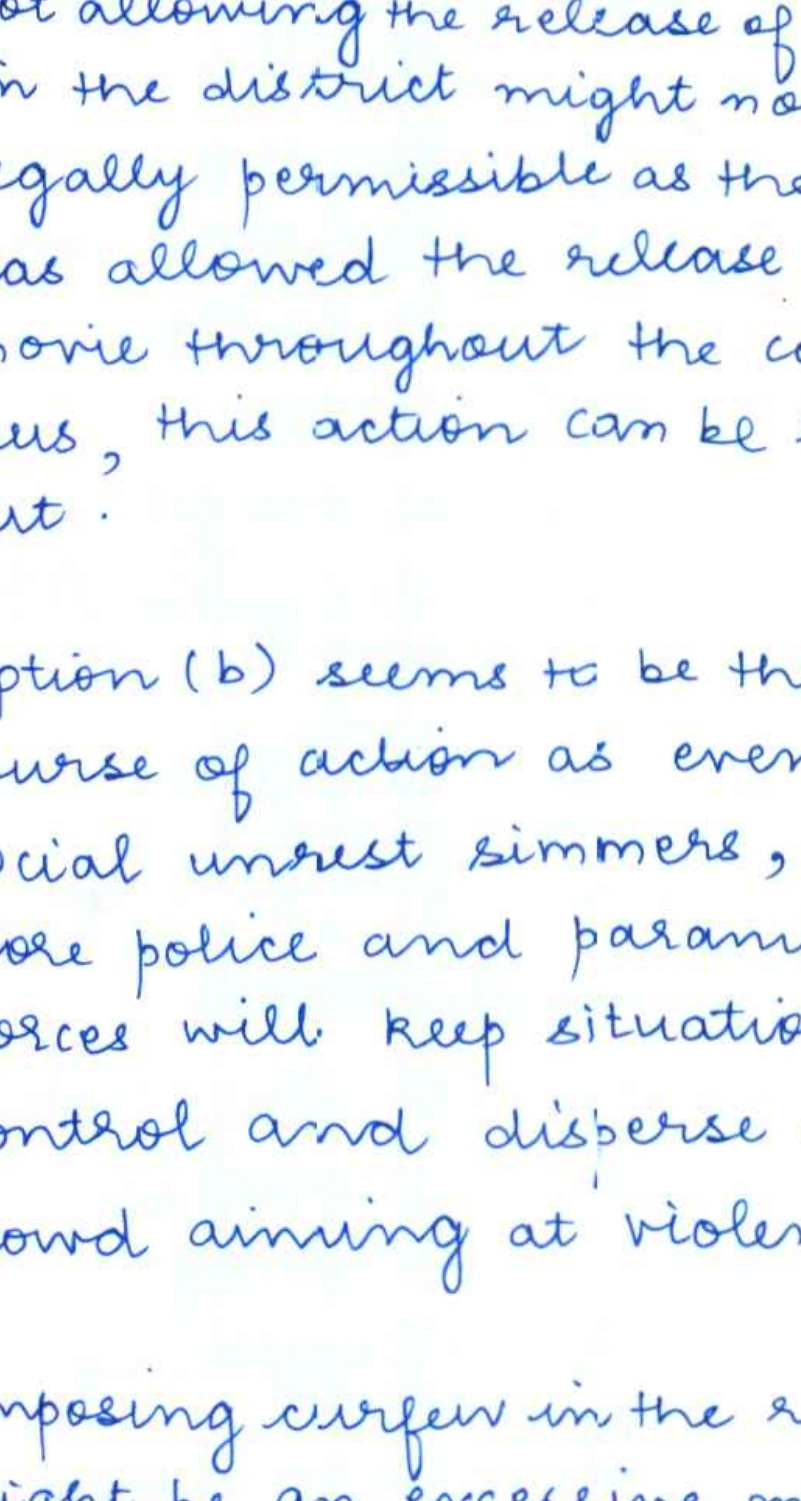 ot allowing the release of
n the district might no
gally permissible as the
as allowed the release
ovie throughout the co
us, this action can be
ut.
ption (b) seems to be th
urse of action as even
cial unrest simmers,
ore police and param
orces will keep situatio
ontrol and disperse
owd aiming at violen
mposing curfew in the r
ight be an excessive m